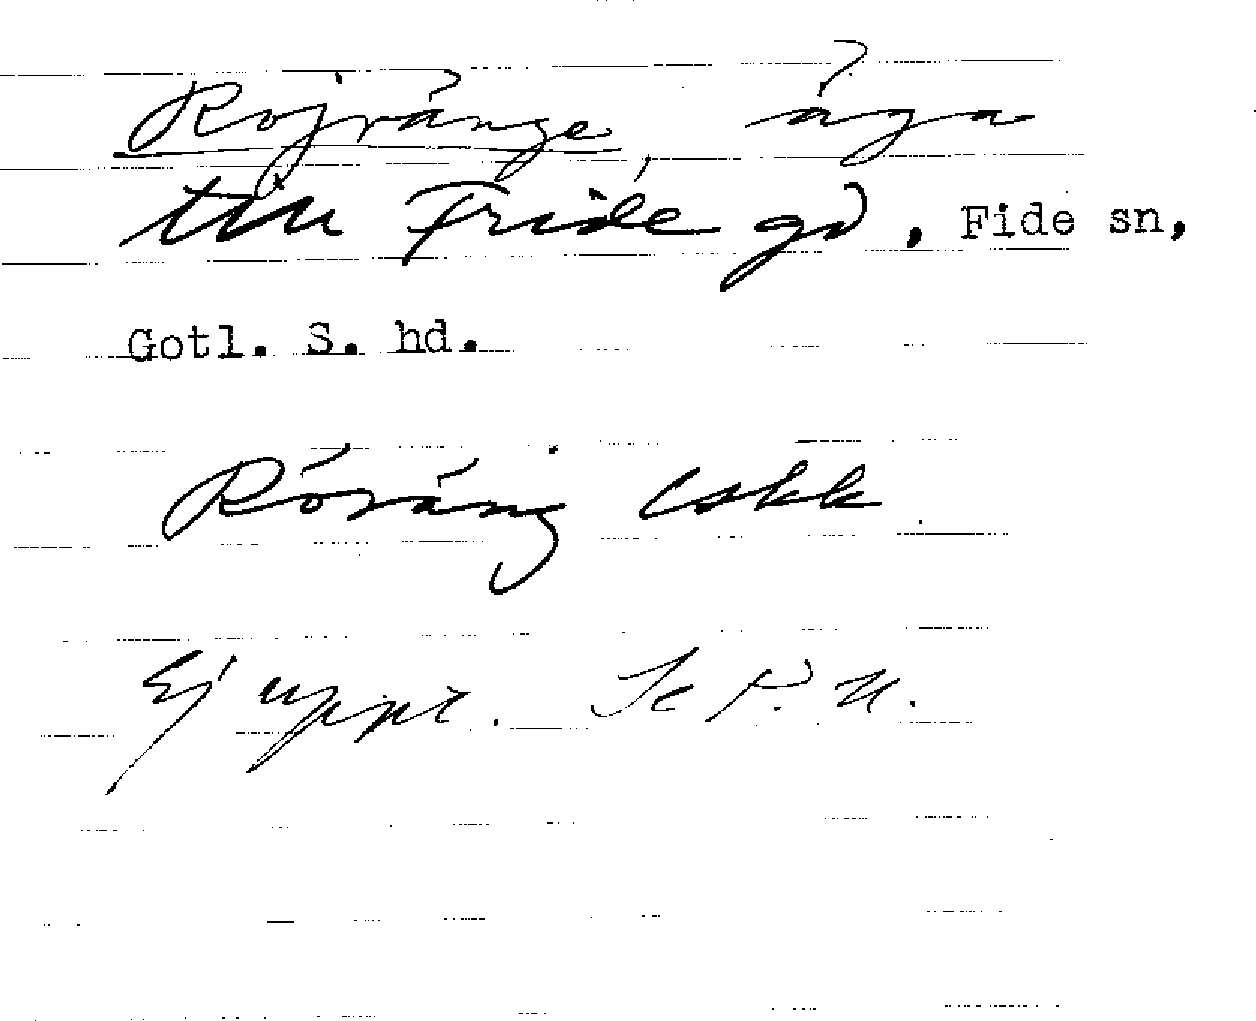 Rojvänge, äga
till Fride gd, Fide sn,
Gotl. S. hd.
Röräng Eskk
Ej uppt. Se P. U.